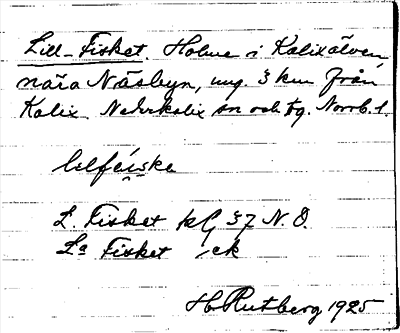 Lill-Fisket. Holme i Kalixälven
nära Näsbyn, ung. 3 km från
Kalix. Nederkalix sn och tg. Norrb. l.
lilfeiske
L. Fisket kG 37 N.O.
La Fisket ck
H Rutberg 1925